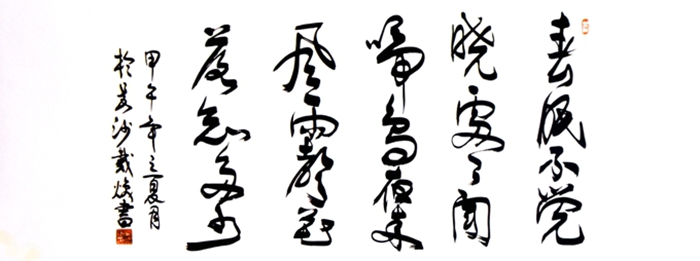 春眠不觉
晓處々闻
啼鸟夜来
风雨聲花
落知多少
甲午年之夏月
於长沙戴焕書